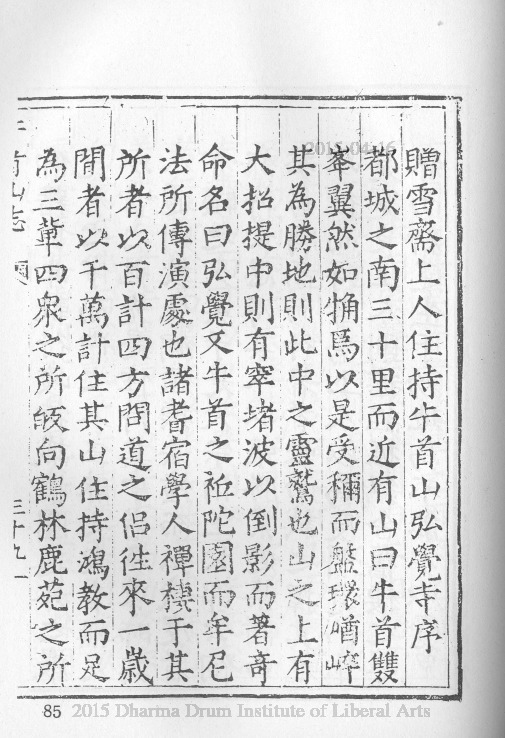 贈雪齋上人住持牛首山弘覺寺序
都城之南三十里而近有山曰牛首雙
峯翼然如觕焉以是受稱而盤環崷崪
其為勝地則此中之靈鷲也山之上有
大招提中則有窣堵波以倒影而著奇
命名曰弘覺又牛首之祗陀園而牟尼
法所傳演處也諸耆宿學人禪棲于其
所者以百計四方問道之侶徃來一歲
間者以千萬計住其山住持鴻教而足
為三軰四衆之所皈向鶴林鹿苑之所
首山志
三十九
85 2015 Dharma Drum Institute of Liberal Arts